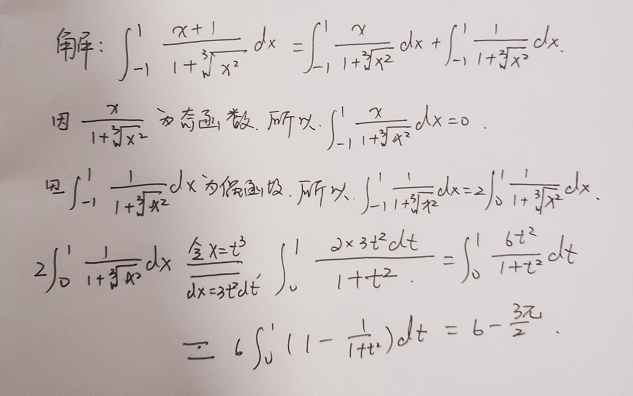 解: ∫_{-1}^{1} \frac{x+1}{1+\sqrt[3]{x^2}} dx = ∫_{-1}^{1} \frac{x}{1+\sqrt[3]{x^2}} dx + ∫_{-1}^{1} \frac{1}{1+\sqrt[3]{x^2}} dx.
因 \frac{x}{1+\sqrt[3]{x^2}} 为奇函数. 所以. ∫_{-1}^{1} \frac{x}{1+\sqrt[3]{x^2}} dx = 0.
因 ∫_{-1}^{1} \frac{1}{1+\sqrt[3]{x^2}} dx 为偶函数. 所以. ∫_{-1}^{1} \frac{1}{1+\sqrt[3]{x^2}} dx = 2∫_{0}^{1} \frac{1}{1+\sqrt[3]{x^2}} dx.
2∫_{0}^{1} \frac{1}{1+\sqrt[3]{x^2}} dx \xlongequal[dx=3t^2dt]{令x=t^3} ∫_{0}^{1} \frac{2×3t^2dt}{1+t^2}. = ∫_{0}^{1} \frac{6t^2}{1+t^2} dt
= 6∫_{0}^{1} (1 - \frac{1}{1+t^2}) dt = 6 - \frac{3π}{2}.